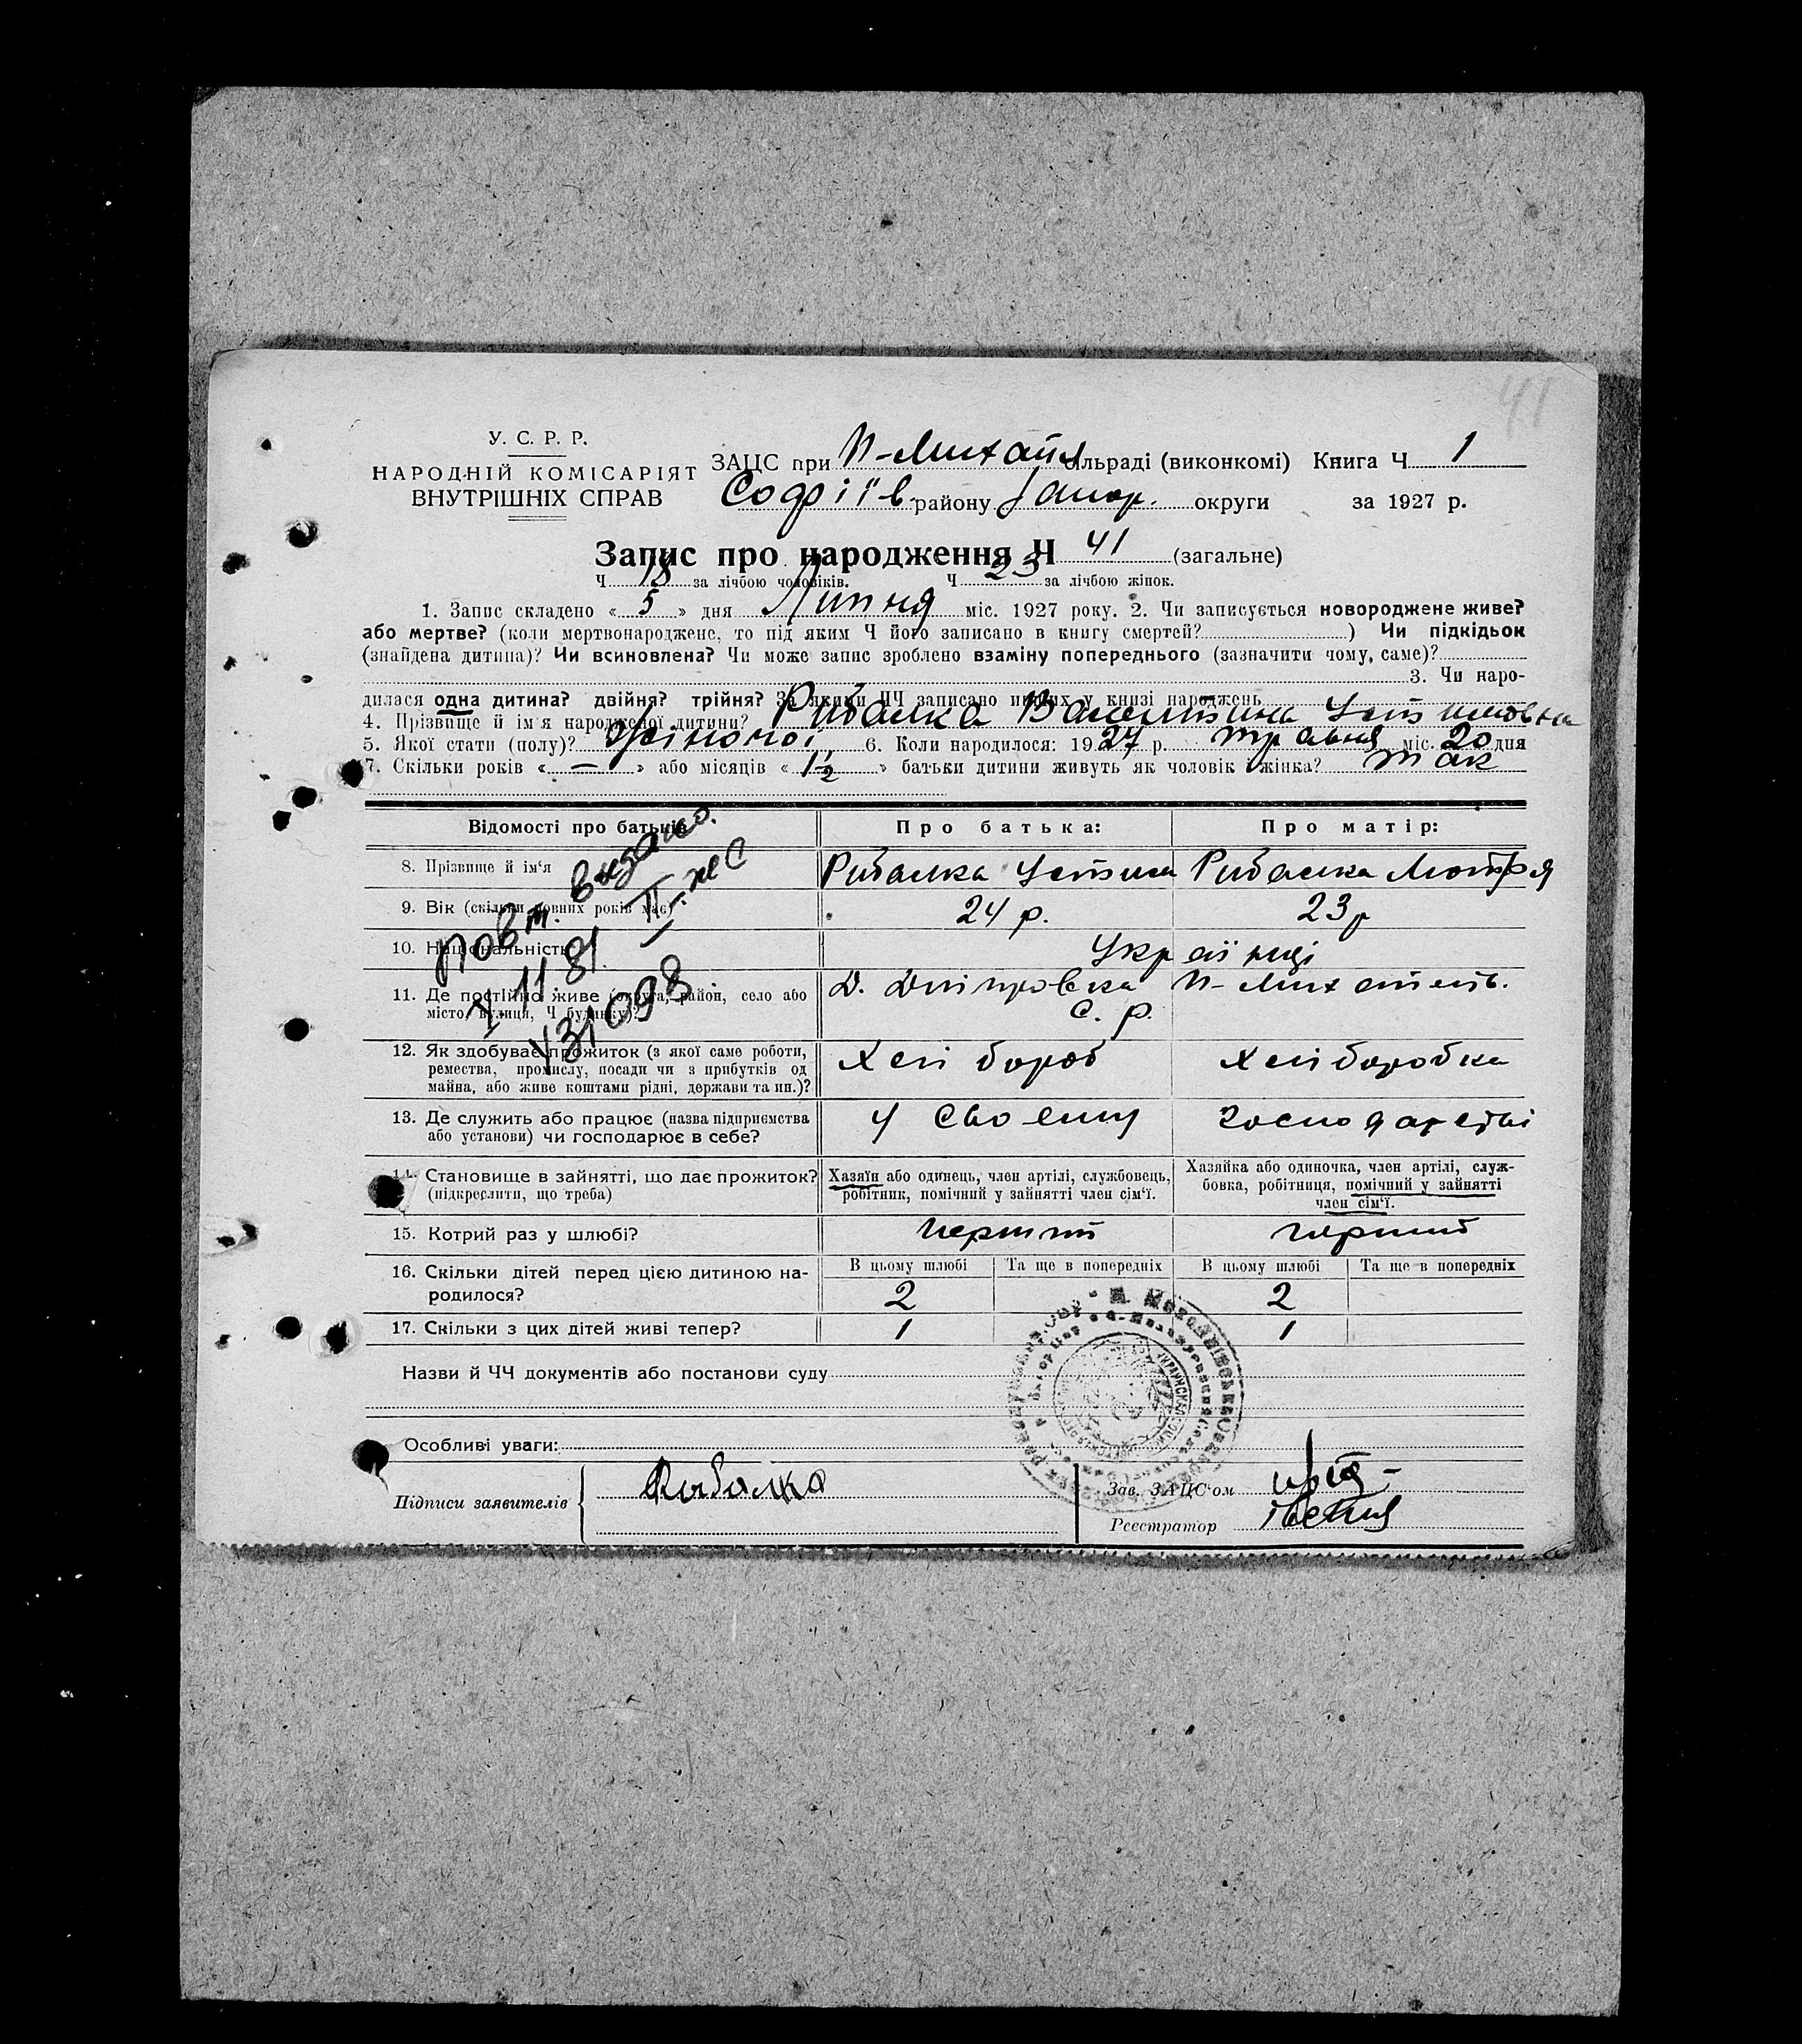 41
У. С. Р. Р.
НАРОДНІЙ КОМІСАРІЯТ
ВНУТРІШНІХ СПРАВ
ЗАЦС при Н-Михайл сільраді (виконкомі) Книга Ч 1
Софіїв району Запор. округи за 1927 р.
Запис про народження Ч 41 (загальне)
Ч 18 за лічбою чоловіків. Ч 23 за лічбою жінок.
1. Запис складено « 5 » дня Липня міс. 1927 року. 2. Чи записується новороджене живе?
або мертве? (коли мертвонароджене, то під яким Ч його записано в книгу смертей? ) Чи підкідьок
(знайдена дитина)? Чи всиновлена? Чи може запис зроблено взаміну попереднього (зазначити чому, саме)?
3. Чи наро-
дилася одна дитина? двійня? трійня? За якими ЧЧ записано инших у книзі народжень
4. Прізвище й ім'я народженої дитини? Рибалка Валентина Устимовна
5. Якої стати (полу)? Жіночої 6. Коли народилося: 1927 р. травня міс. 20 дня
7. Скільки років « — » або місяців « 1½ » батьки дитини живуть як чоловік і жінка? так
Відомості про батьків Про батька: Про матір:
8. Прізвище й ім'я Рибалка Устим Рибалка Мотря
9. Вік (скільки повних років має) 24 р. 23 р
10. Національність Українці
11. Де постійно живе (округа, район, село або Д. Дніпровка Н-Михайлів.
місто, вулиця, Ч будинку)? С. р.
12. Як здобуває прожиток (з якої саме роботи, Хлібороб Хліборобка
ремества, промислу, посади чи з прибутків од
майна, або живе коштами рідні, держави та ин.)?
13. Де служить або працює (назва підприємства У своєму господарстві
або установи) чи господарює в себе?
14. Становище в зайнятті, що дає прожиток? Хазяїн або одинець, член артілі, службовець, Хазяйка або одиночка, член артілі, служ-
(підкреслити, що треба) робітник, помічний у зайнятті член сім'ї. бовка, робітниця, помічний у зайнятті
член сім'ї.
15. Котрий раз у шлюбі? перший перший
16. Скільки дітей перед цією дитиною на- В цьому шлюбі Та ще в попередніх В цьому шлюбі Та ще в попередніх
родилося? 2 2
17. Скільки з цих дітей живі тепер? 1 1
Повт. видано.
II-ЖС
11 81
431098
Назви й ЧЧ документів або постанови суду
Особливі уваги:
Підписи заявителів Рибалка Зав. ЗАЦС'ом
Реєстратор